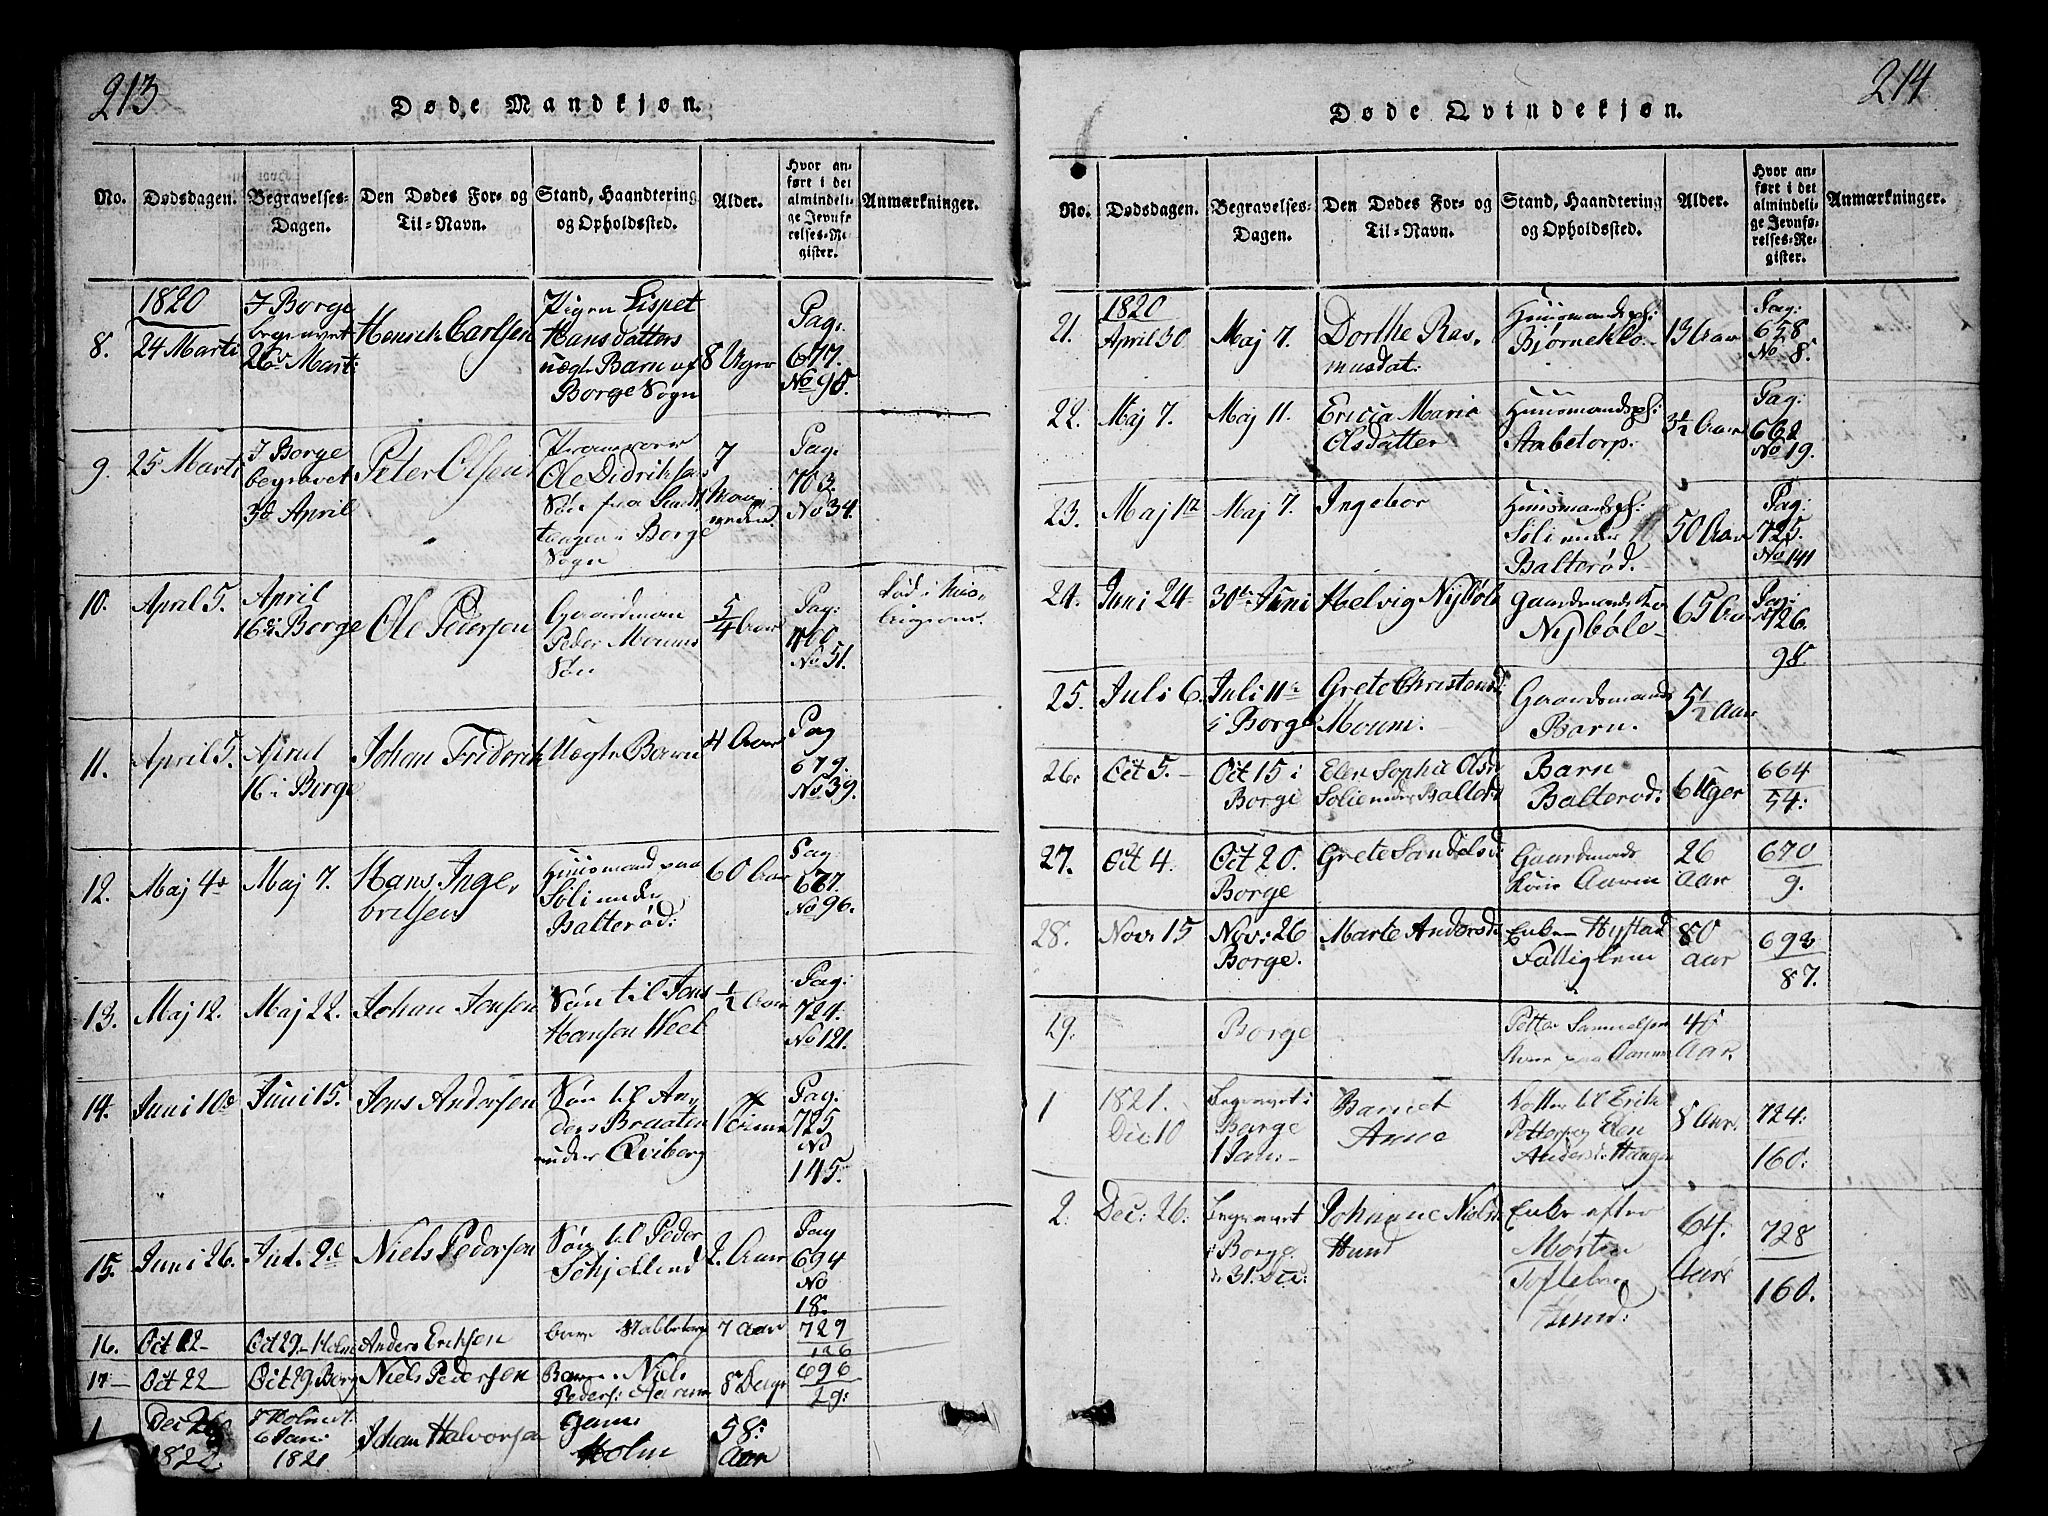 213
Døde Mandkjøn.
No. Dødsdagen. Begravelses-Dagen. Den Dødes For- og Til-Navn. Stand, Haandtering og Opholdssted. Alder. Hvor anført i det almindelige Jevnførelses-Register. Anmærkninger.
1820
8. 24 Marti I Borge begravet 26de Marti Henrich Carlsen Pigen Lispet Hansdatters uægte Barn af Borge Sogn 8 Uger Pag: 677. No 95.
9. 25 Marti I Borge begravet 3d April Peter Olsen Ole Didriksens Søn fra i Borge Sogn 7 Pag: 703. No 34.
10. April 5. April 16de Borge Ole Pedersen Gaardman Peder Moums Søn 5/4 Aar Pag: No 51. død i
11. April 5. April 16 i Borge Johan Friderich Uægte Barn 4 Aar Pag 679. No. 39.
12. Maj 4de Maj 7. Hans Ingebritsen Huusmand paa Soli under Balterød: 60 Aar Pag 667. No 96.
13. Maj 12. Maj 22. Johan Jonsen Søn til Jons Hansen Heel 1/2 Aar Pag: 724. No 121.
14. Juni 10de Juni 15. Jens Andersen Søn til Anders Braaten under Qviberg 1 Time Pag: 725 No 145.
15. Juni 26. Jul. 2d Niels Pedersen Søn til Peder 2. Aar Pag 694 No 18.
16. Oct 22- Oct 29- Holm Anders Eriksen Stabbetorp 7 Aar 729 126
17- Oct 22 Oct 29. Borg Niels Pedersen Barn Niels Peders: 8 Dage 696 29:
1 Dec 26 1820. Holm 6 Jan: 1821 Johan Halvorsen Holm 58: Aar
214
Døde Qvindekjøn.
No. Dødsdagen. Begravelses-Dagen. Den Dødes For- og Til-Navn. Stand, Haandtering og Opholdssted. Alder. Hvor anført i det almindelige Jevnførelses-Register. Anmærkninger.
1820
21. April 30 Maj 7. Dorthe Rasmusdat: Huusmandspf: Bjørneklo- 13 Aar Pag: 658 No 8.
22. Maj 7. Maj 11. Ericia Maria Olsdatter Huusmandspf: Stabetorp. 3 1/2 Aar Pag: 662 No 19.
23. Maj 1te Maj 7. Ingebor Huusmandspf: Soli under Balterød. 50 Aar Pag: 725. No 141
24. Juni 24 30te Juni Helvig Nybøle Gaardmands Nybøle- 65 Aar Pag: 726. 98.
25. Juli 6. Juli 11te i Borge Grete Christensd Moum: Gaardsmands Barn. 5 1/2 Aar
26. Oct 5.- Oct 15 i Borge Elen Sophie Olsd Solie under Balterød Barn Balterød. 6 Uger 664 54:
27. Oct 4. Oct 20. Borge Grete Gaardmands Kone Aarum 26 Aar 670 9.
28. Nov. 15 Nov: 26 Borge. Marte Andersd Enke Hystad Fattiglem 80 Aar 693 87.
29. Borge Petter Samuelsen Kone paa Aarum 48 Aar.
1 1821. Dec 10 Begravet i Borge 1 Jan:- Barnet Anne Datter til Erik Petters og Elen Anders: i Haugen 8 Aar. 724: 160:
2: Dec: 26: Begravet i Borge d. 31. Dec: Johanne Nielsd Hund Enke efter Morten Tofteberg Hund: 64. Aar 728 160.